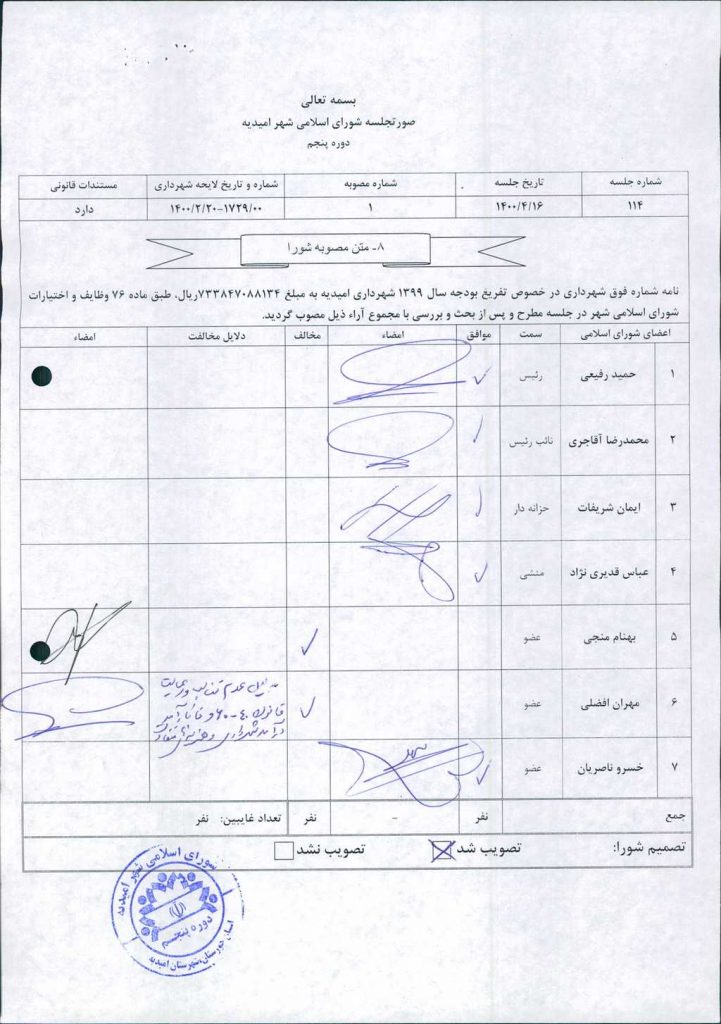 بسمه تعالی
صورتجلسه شورای اسلامی شهر امیدیه
دوره پنجم
شماره جلسه تاریخ جلسه شماره مصوبه شماره و تاریخ لایحه شهرداری مستندات قانونی
۱۱۴ ۱۴۰۰/۴/۱۶ ۱ ۱۴۰۰/۲/۲۰-۱۷۲۹/۰۰ دارد
۸- متن مصوبه شورا
نامه شماره فوق شهرداری در خصوص تفریغ بودجه سال ۱۳۹۹ شهرداری امیدیه به مبلغ ۷۳۳۸۴۷۰۸۸۱۳۴ریال، طبق ماده ۷۶ وظایف و اختیارات
شورای اسلامی شهر در جلسه مطرح و پس از بحث و بررسی با مجموع آراء ذیل مصوب گردید.
اعضای شورای اسلامی سمت موافق امضاء مخالف دلایل مخالفت امضاء
۱ حمید رفیعی رئیس
۲ محمدرضا آقاجری نائب رئیس
۳ ایمان شریفات خزانه دار
۴ عباس قدیری نژاد منشی
۵ بهنام منجی عضو
۶ مهران افضلی عضو
عدم تناسب
قانون ۴۰-۶۰ و
درآمد شهرداری و هزینه‌های
۷ خسرو ناصریان عضو
جمع نفر - نفر تعداد غایبین: نفر
تصمیم شورا: تصویب شد تصویب نشد
شورای اسلامی شهر امیدیه
دوره پنجم
استان خوزستان شهرستان امیدیه